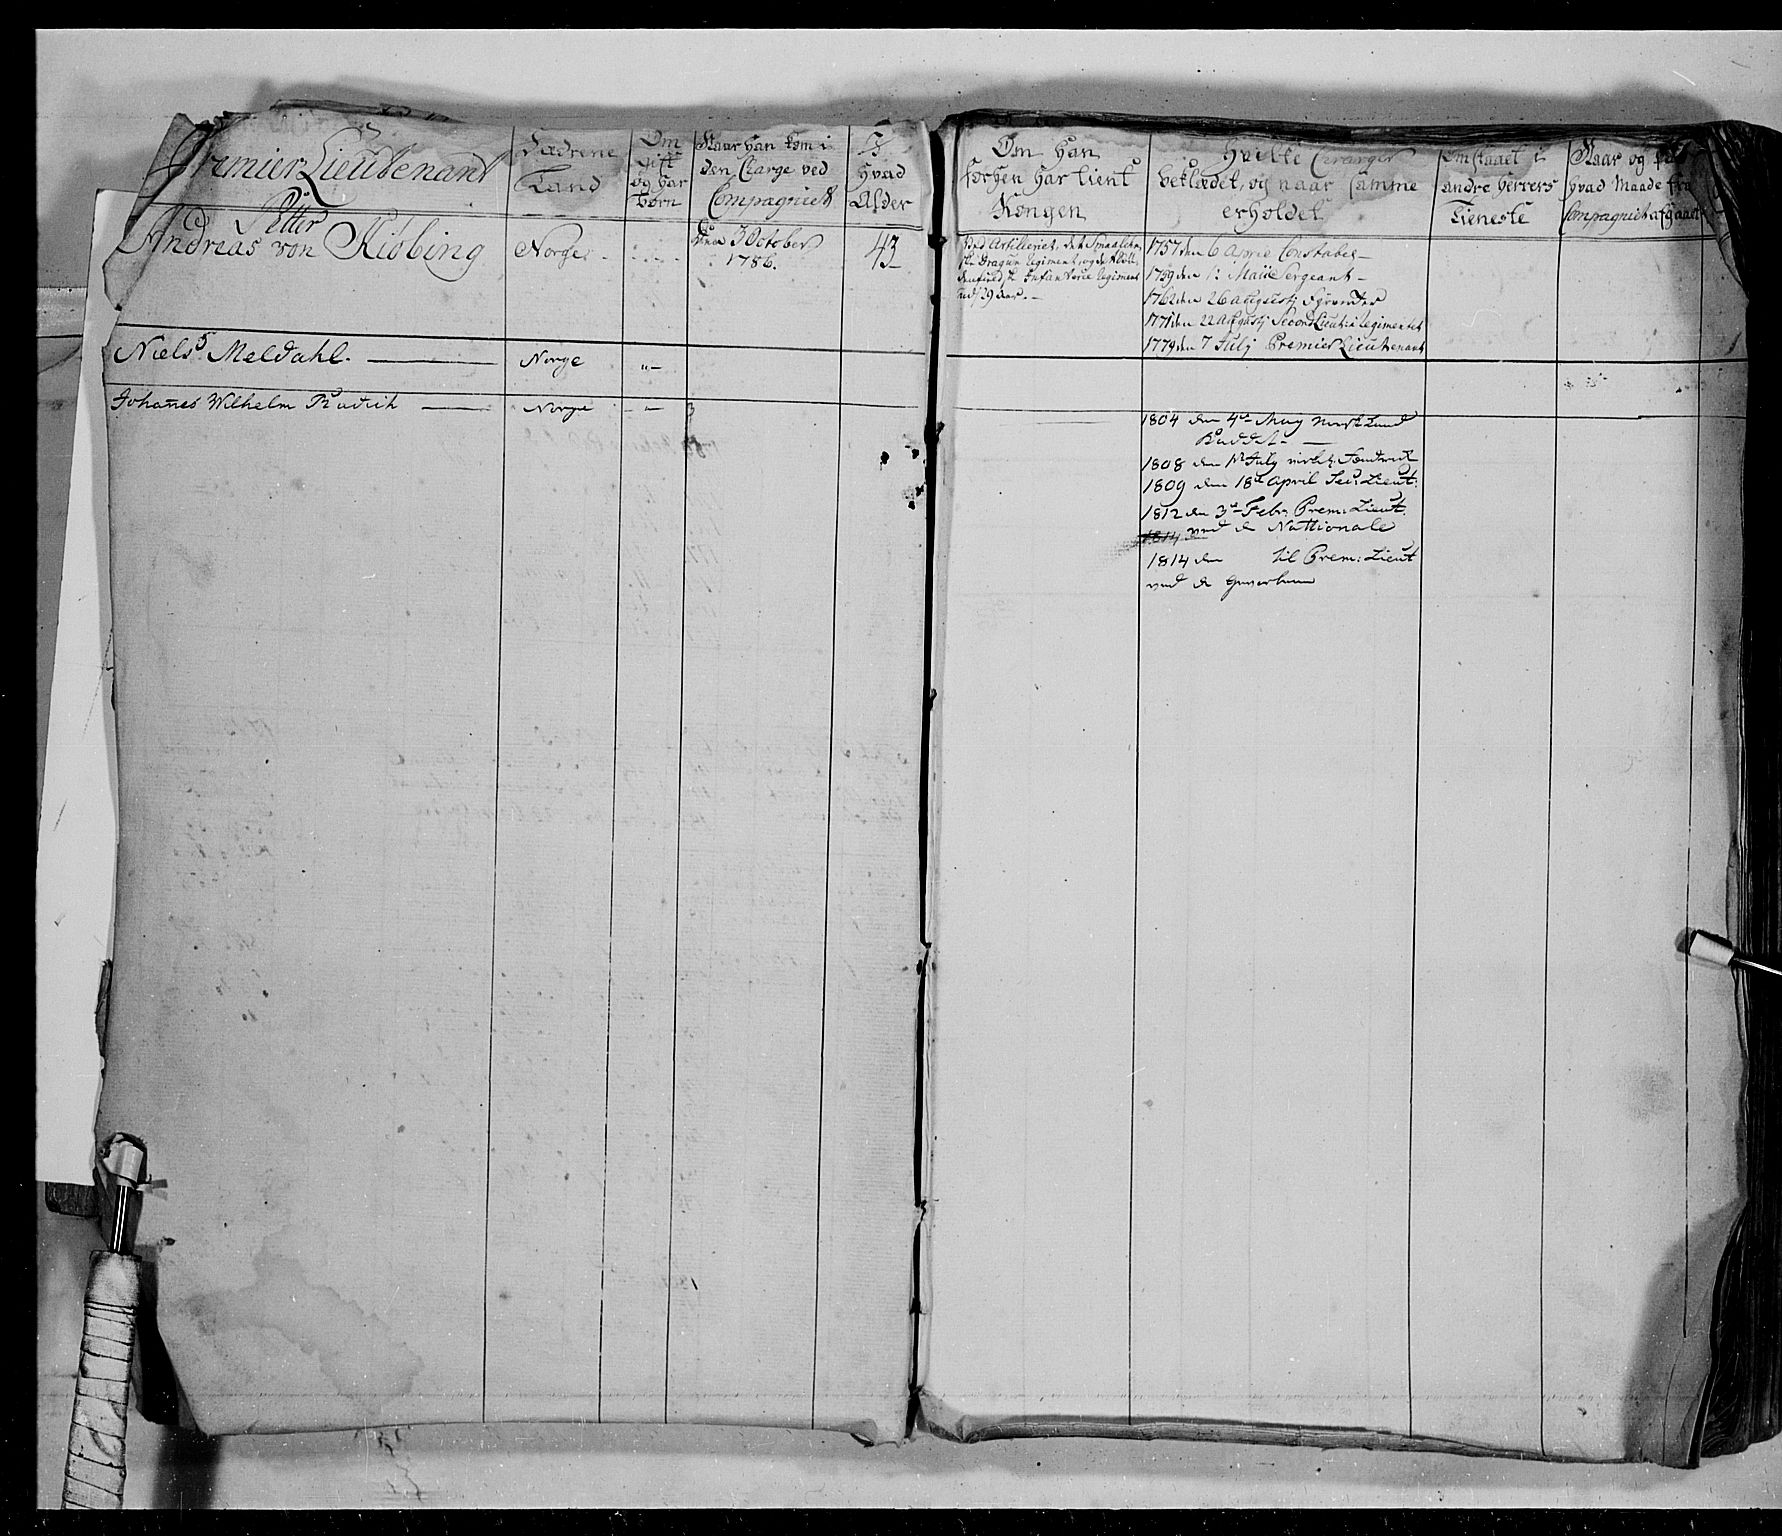 Premier Lieutenant
Fædrene
Land
Om
gift
og har
Børn
Naar han kom i
den Charge ved
Compagniet
Hvad
Alder
Om Han
forhen har tient
Kongen
Hvilke Charger
beklædet, og naar samme
erholdet
Om staaet i
andre Herrers
Tieneste
Naar og paa
hvad Maade fra
Compagniet afgaaet
Petter
Andreas von Kiøbing
Norge
den 3 October
1786.
43
Ved Artilleriet, det Smaalehn
ske Dragun Regiment, og det
Infanterie Regiment
udj 29 Aar.
1757 den 6 April Constabel
1759 den 1: Maii Sergeant
1762 den 26 Augustj Førender
1771 den 22 Augustj Second Lieut: i Regimentet
1779 den 7 Julj Premier Lieutenant
Niels S. Meldahl.
Norge
"
Johanes Wilhelm
Norge
"
1804 den 4de May
1808 den 1ste July
1809 den 18de April Sec: Lieut:
1812 den 3de Febr: Prem: Lieut:
ved de Nattionale
1814
1814 den til Prem: Lieut
ved de